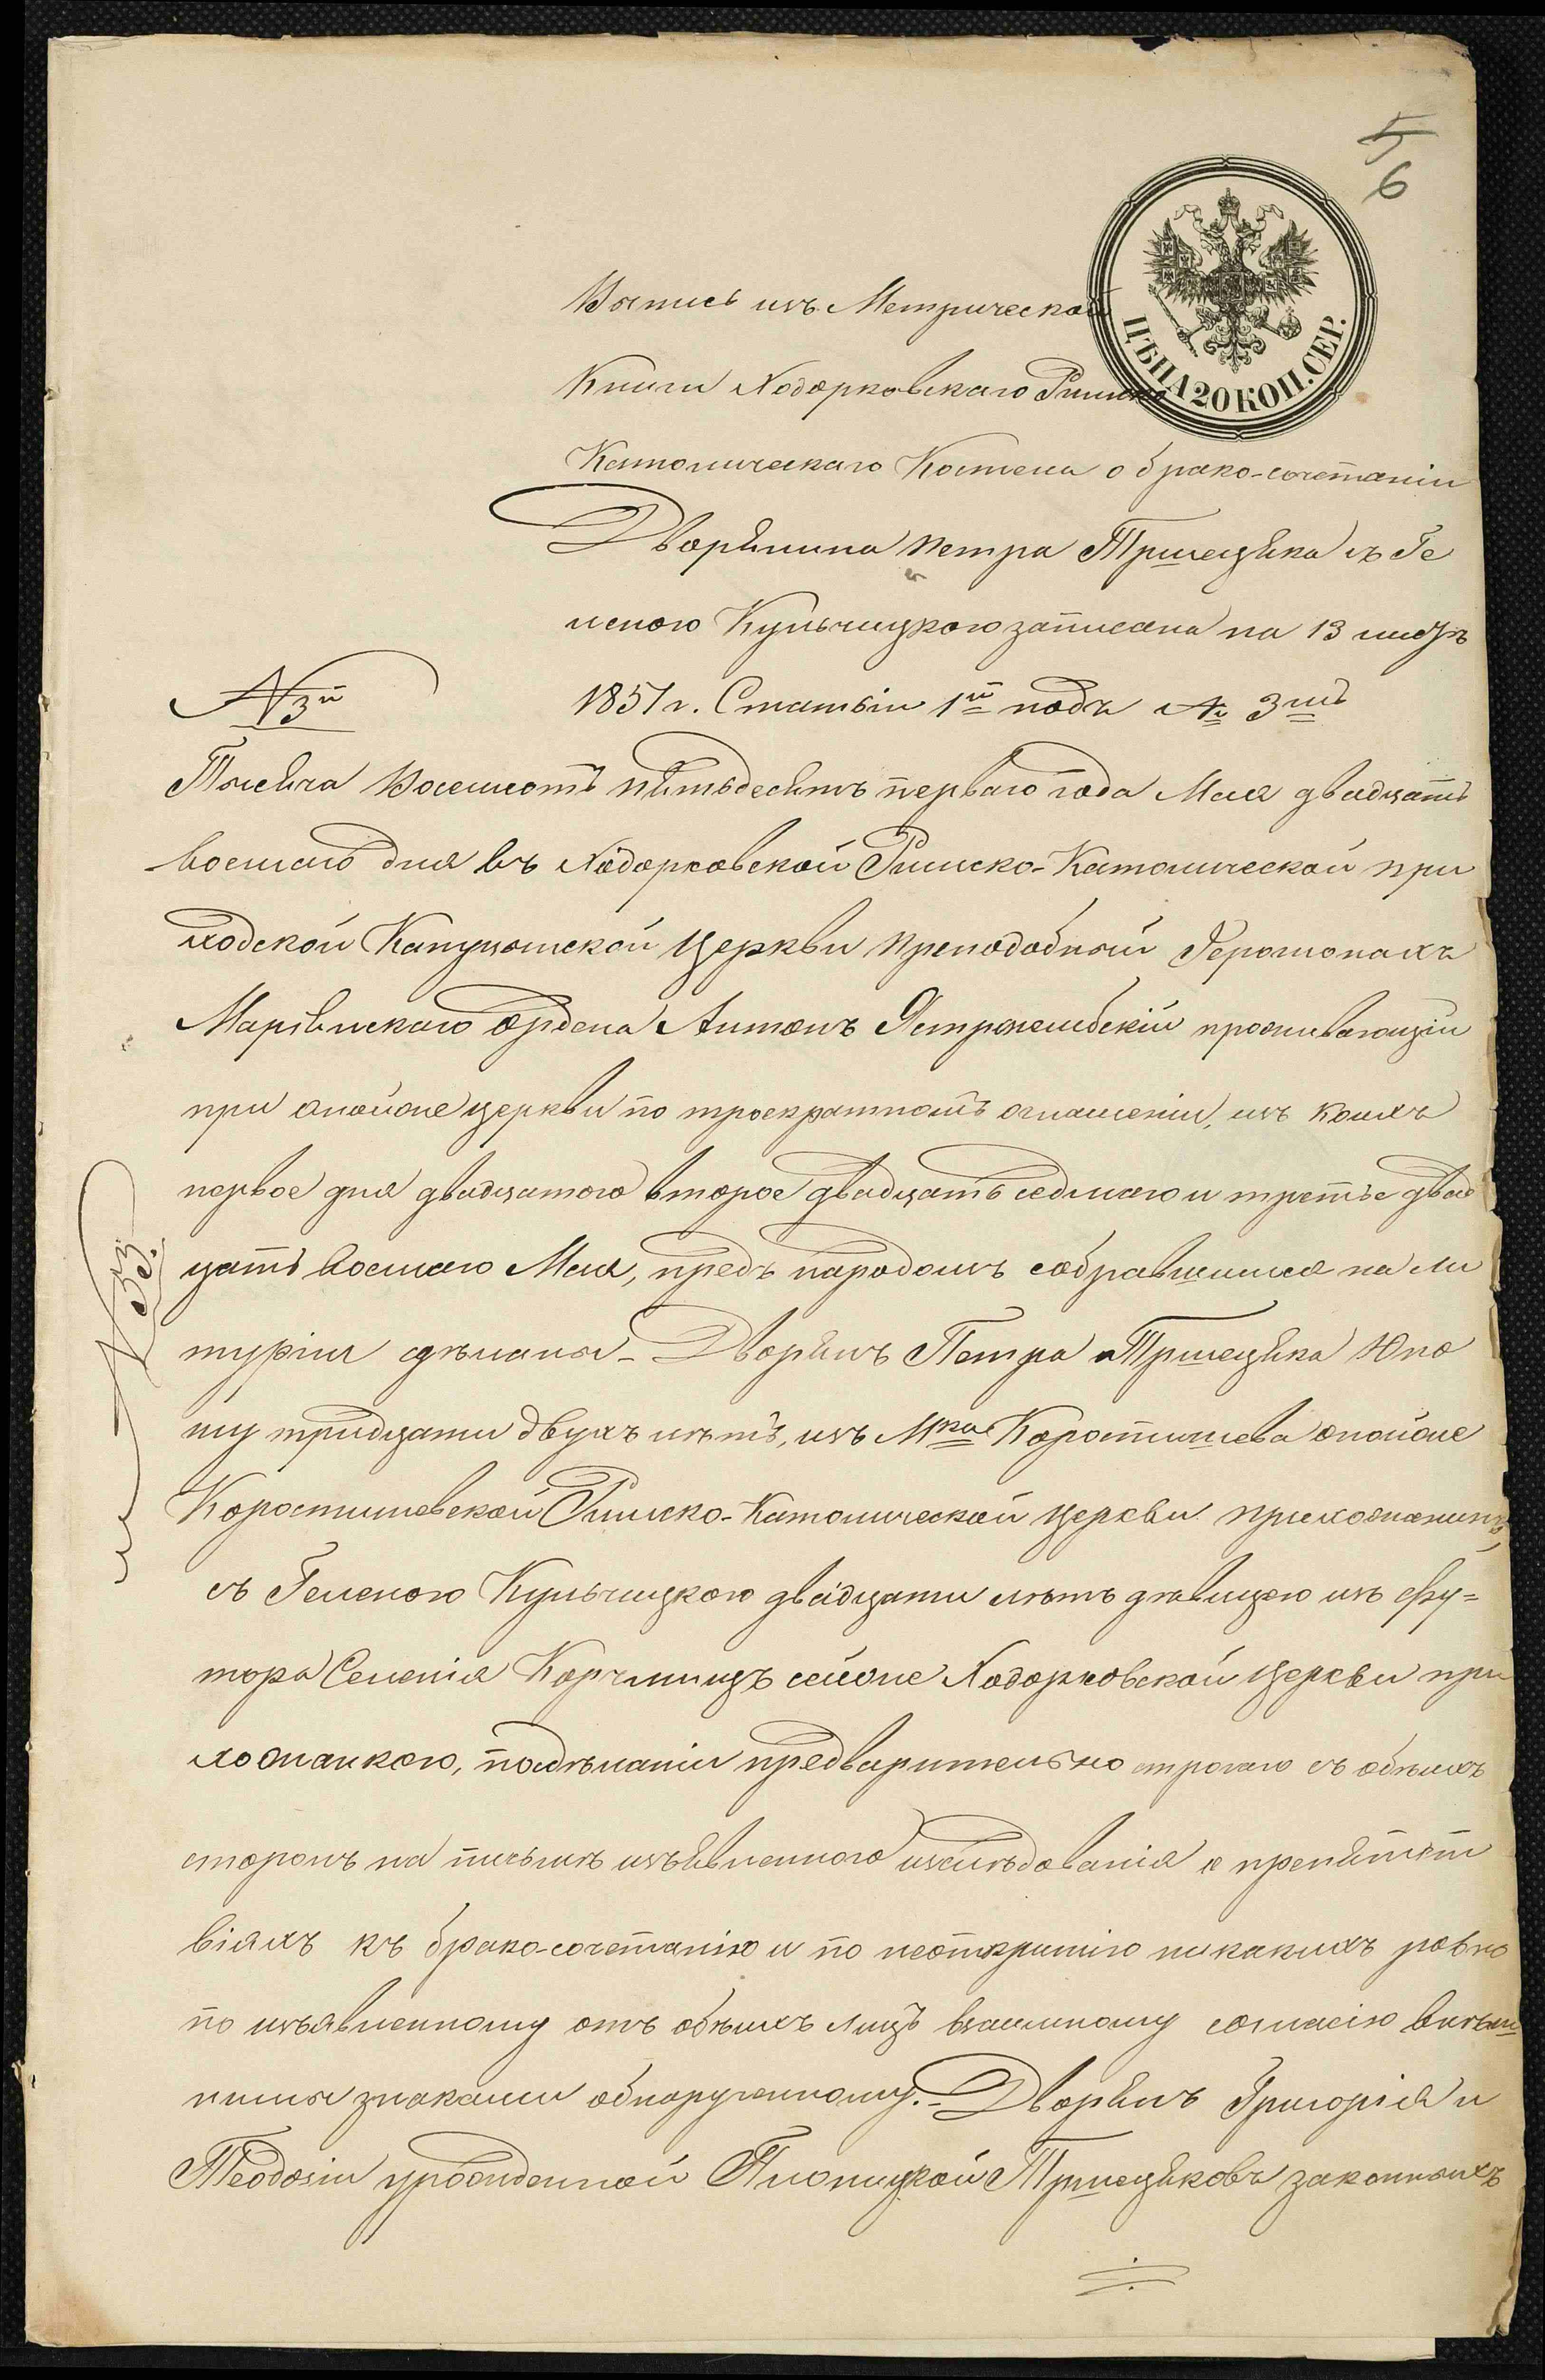 5
6
ЦѢНА 20 КОП. СЕР.
Выпись изъ Метрической
Книги Ходорковскаго Римско
Католическаго Костела о брако-сочетаніи
Дворянина Петра Тршецяка съ Ге
леною Кульчицкою записана на 13 листѣ
N 3й
1851 г. Статьи 1й подъ № 3мъ
Тысяча Восемсотъ пятьдесятъ перваго года Мая двадцать
восьмаго дня въ Ходорковской Римско-Католической при
ходской Капуцынской Церкви Преподобный Іеромонахъ
Маріянскаго Ордена Антонъ Ястржембскій проживающій
при оной же церкви по троекратномъ оглашеніи, изъ коихъ
первое дня двадцатого второе двадцать седмаго и третье двад
цать восмаго Мая, предъ народомъ собравшимся на ли
тургіи сдѣланы - Дворянъ Петра Тршецяка Юно
шу тридцати двухъ лѣтъ, изъ Мка Коростышева оной же
Коростышевской Римско-Католической Церкви прихожанинъ,
съ Геленою Кульчицкою двадцати лѣтъ дѣвицею изъ фу=
тора Селенія Корчмищъ сей же Ходорковской Церкви при
хожанкою, по сдѣланіи предварительно строгаго съ обѣихъ
сторонъ на письмѣ изъявленного изслѣдованія о препятст
віяхъ къ брако-сочетанію и по неоткрытію никакихъ ровно
по изъявленному отъ обѣихъ лицъ взаимному согласію внѣш
ними знаками обнаруженному. - Дворянъ Григорія и
Теодозіи урожденной Тршецяковъ законныхъ
N 33